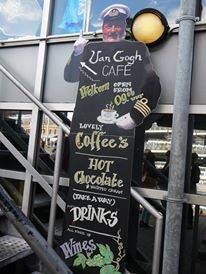 Van Gogh
CAFE
Welkom
OPEN
FROM
09.
LOVELY
Coffee's
HOT
Chocolate
WHIPPED CREAM
(TAKE AWAY)
DRINKS
ALL KINDS OF
Wines